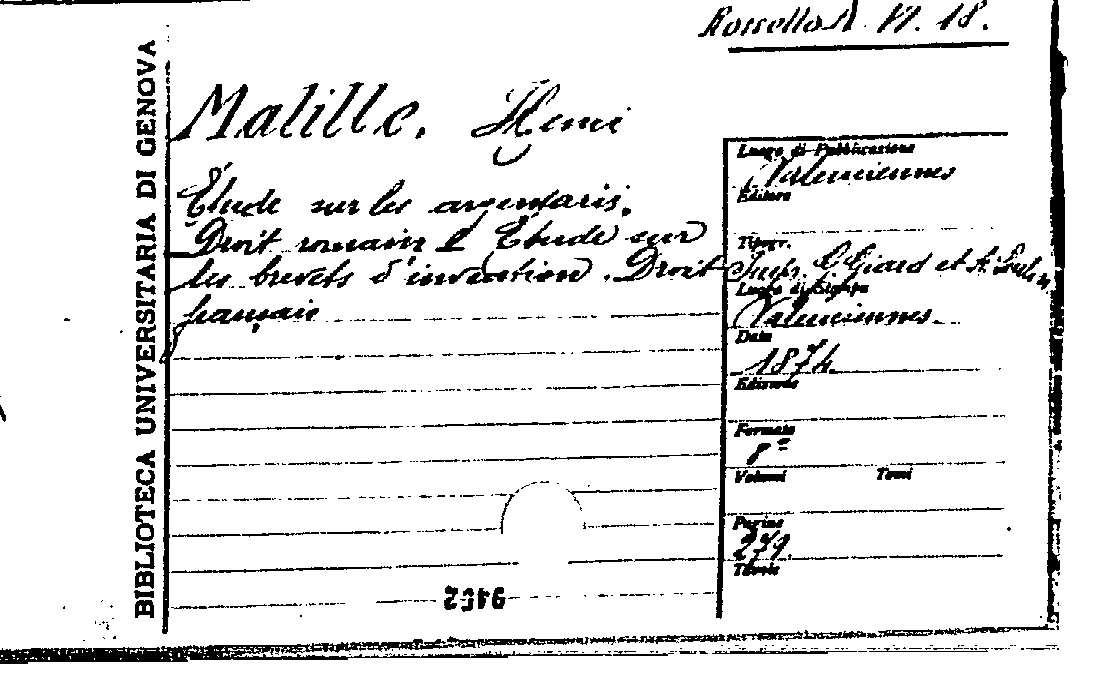 Rossello A. VI. 18.
BIBLIOTECA UNIVERSITARIA DI GENOVA
Malille, Henri
Étude sur les argentaris.
Droit romain & Étude sur
les brevets d'invention. Droit
français
Luogo di Pubblicazione
Valenciennes
Editore
Tipogr.
G. Giard et A.
Luogo di Stampa
Valenciennes
Data
1874
Edizione
Formato
8°
Volumi Tomi
Pagine
279.
Tavole